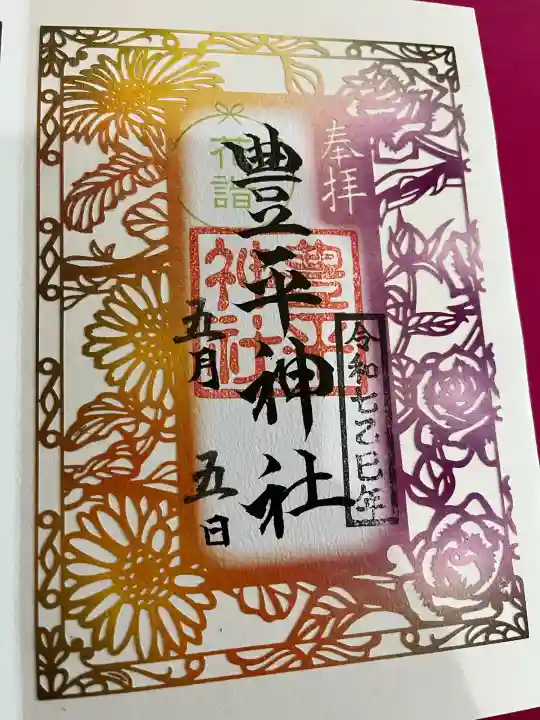 奉拝
令和七乙巳年
豊平神社
豊平
神社
花詣
五月五日